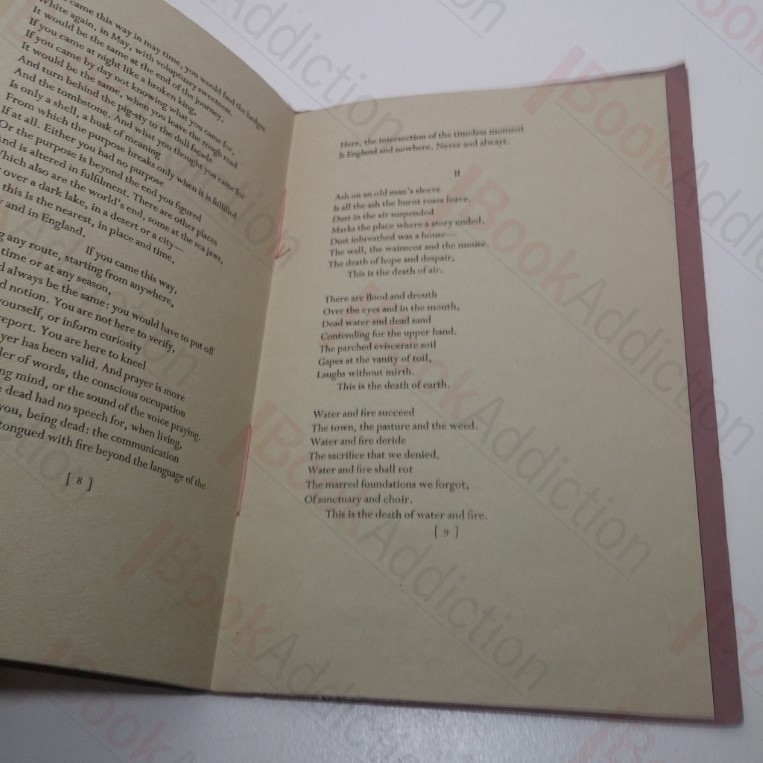 came this way in may time, you would find the hedges
White again, in May, with voluptuary sweetness.
It would be the same at the end of the journey,
If you came at night like a broken king,
If you came by day not knowing what you came for,
It would be the same, when you leave the rough road
And turn behind the pig-sty to the dull façade
And the tombstone. And what you thought you came for
Is only a shell, a husk of meaning
From which the purpose breaks only when it is fulfilled
If at all. Either you had no purpose
Or the purpose is beyond the end you figured
And is altered in fulfilment. There are other places
Which also are the world's end, some at the sea jaws,
over a dark lake, in a desert or a city—
this is the nearest, in place and time,
and in England.
If you came this way,
any route, starting from anywhere,
time or at any season,
always be the same: you would have to put off
notion. You are not here to verify,
yourself, or inform curiosity
report. You are here to kneel
been valid. And prayer is more
of words, the conscious occupation
mind, or the sound of the voice praying.
dead had no speech for, when living,
you, being dead: the communication
tongued with fire beyond the language of the
[ 8 ]
Here, the intersection of the timeless moment
Is England and nowhere. Never and always.
II
Ash on an old man's sleeve
Is all the ash the burnt roses leave.
Dust in the air suspended
Marks the place where a story ended.
Dust inbreathed was a house—
The wall, the wainscot and the mouse.
The death of hope and despair,
This is the death of air.
There are flood and drouth
Over the eyes and in the mouth,
Dead water and dead sand
Contending for the upper hand.
The parched eviscerate soil
Gapes at the vanity of toil,
Laughs without mirth.
This is the death of earth.
Water and fire succeed
The town, the pasture and the weed.
Water and fire deride
The sacrifice that we denied.
Water and fire shall rot
The marred foundations we forgot,
Of sanctuary and choir.
This is the death of water and fire.
[ 9 ]
BookAddiction